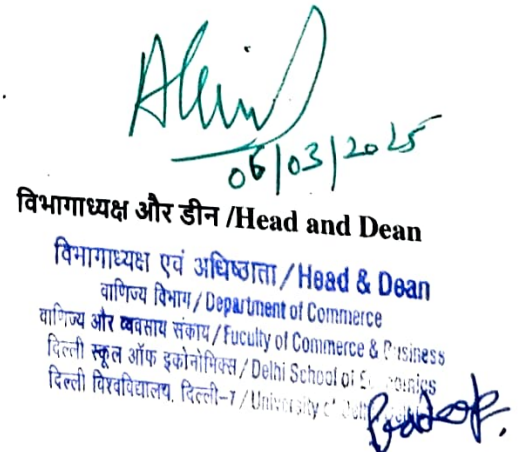 06/03/2025
विभागाध्यक्ष और डीन /Head and Dean
विभागाध्यक्ष एवं अधिष्ठाता / Head & Dean
वाणिज्य विभाग / Department of Commerce
वाणिज्य और व्यवसाय संकाय / Fuculty of Commerce & Business
दिल्ली स्कूल ऑफ इकोनोमिक्स / Delhi School of
दिल्ली विश्वविद्यालय, दिल्ली-7 / University